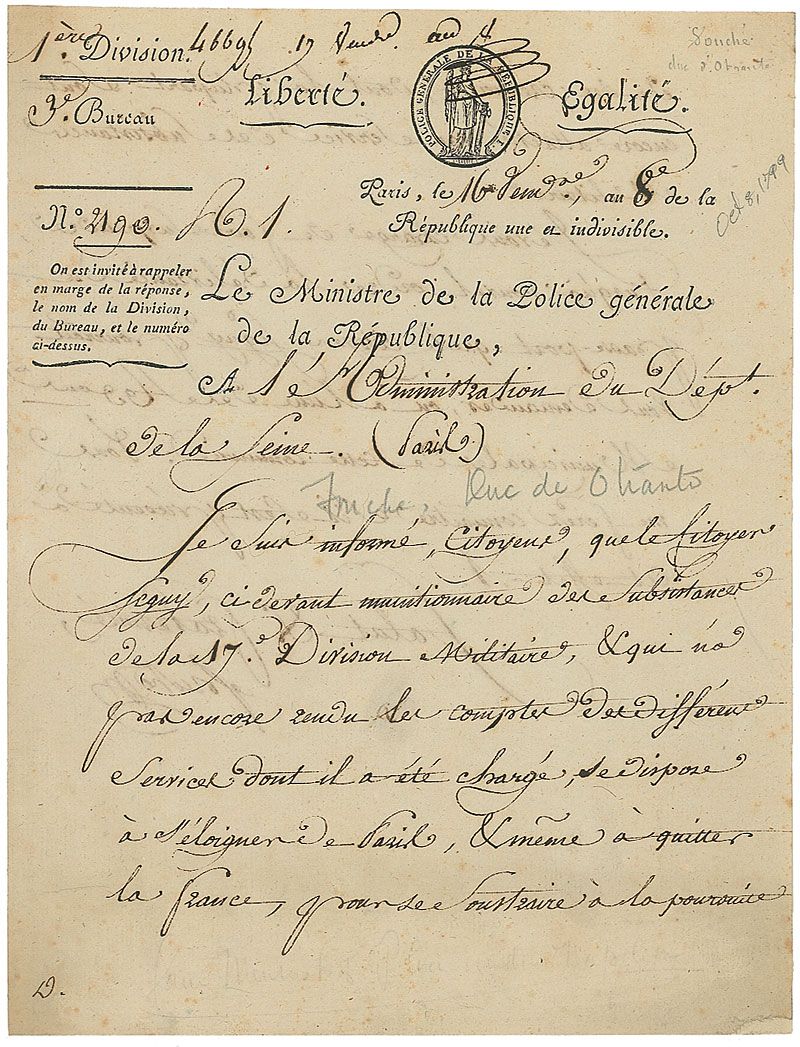 1ère Division.
4669
17 Vendre. an 8
Fouché
duc d'Otrante
3e Bureau
Liberté.
POLICE GENERALE DE LA REPUBLIQUE
Egalité.
Paris, le 16 Vendre., an 8e de la
République une et indivisible.
Oct 8, 1799
N.o 2190. R. 1.
On est invité à rappeler
en marge de la réponse,
le nom de la Division,
du Bureau, et le numéro
ci-dessus.
Le Ministre de la Police générale
de la République,
A l'Administration du Dépt.
de la Seine. (Paris)
Fouche, Duc de Otranto
Je suis informé, Citoyens, que le Citoyen
Seguy, ci devant munitionnaire des Subsistances
de la 17.e Division Militaire, & qui n'a
pas encore rendu les comptes des différens
Services dont il a été chargé, se dispose
à s'éloigner de Paris, & même à quitter
la france, pour se soustraire à la poursuite
D.